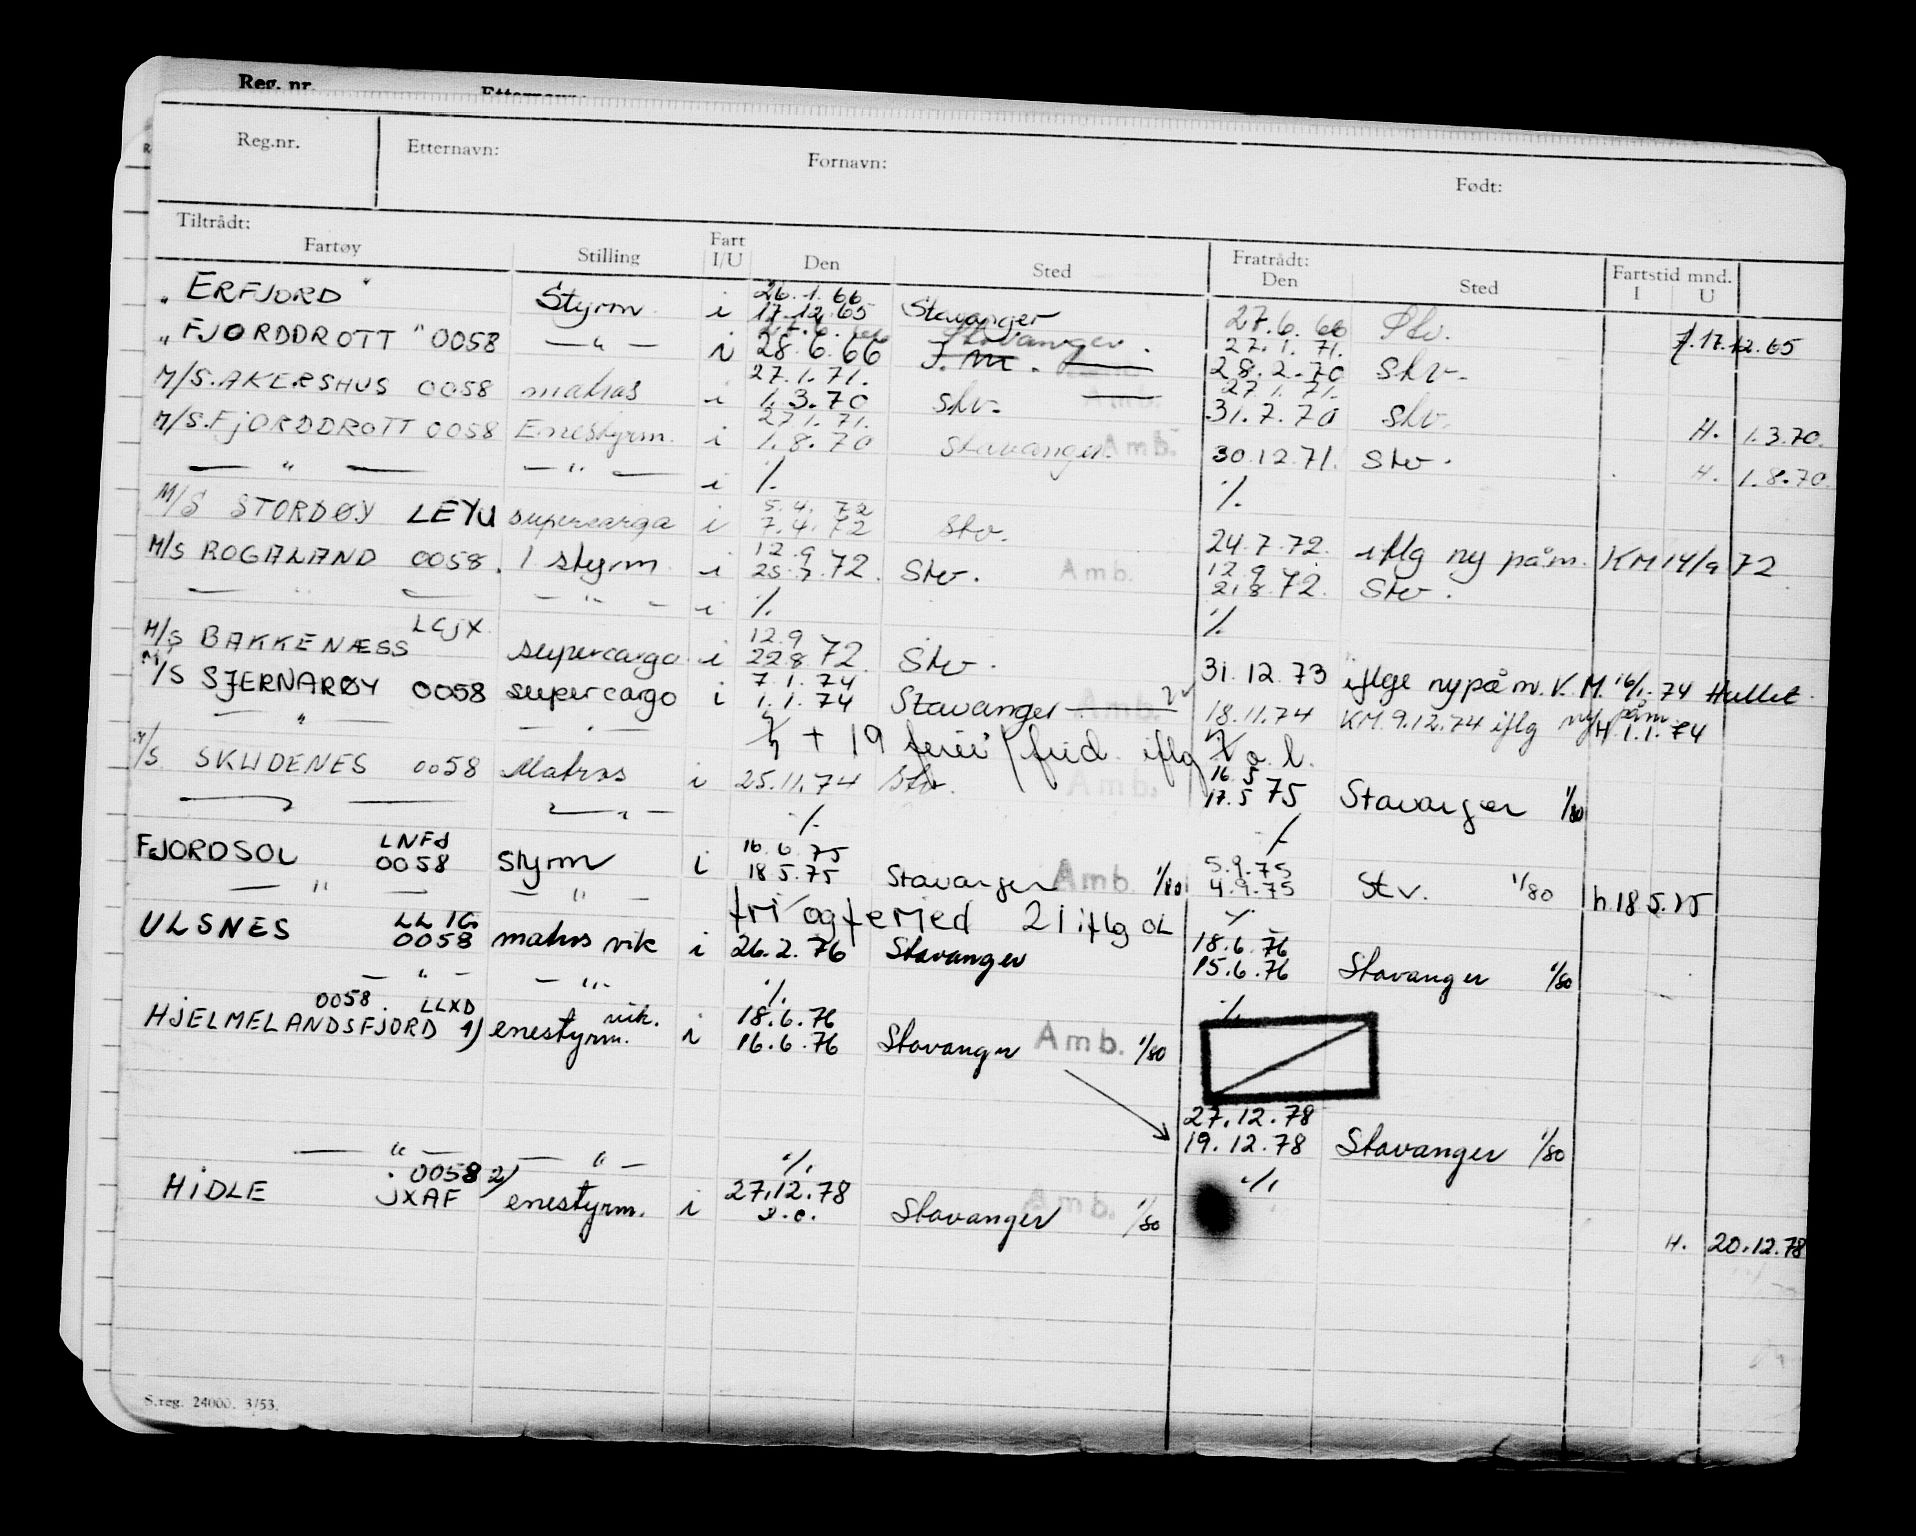 Reg. nr.
Reg.nr. Etternavn: Fornavn: Født:
Tiltrådt: Fratrådt:
Fartøy Stilling Fart I/U Den Sted Den Sted Fartstid mnd. I U
"ERFJORD" Styrm i 26.1.66 17.12.65 Stavanger 27.6.66 Stv. 17.12.65
"FJORDDROTT" 0058 — " — i 28.6.66 27.1.71. 28.2.70 Stv.
M/S. AKERSHUS 0058 matros i 27.1.71. 1.3.70 Stv. Amb. 27.1.71. 31.7.70 Stv. H. 1.3.70.
M/S. FJORDDROTT 0058 Enestyrm. i 27.1.71. 1.8.70 Stavanger. Amb. 30.12.71. Stv. H. 1.8.70.
— " — — " — i ./. ./.
M/S STORDØY LEYU supercargo i 5.4.72 7.4.72 Stv. 24.7.72. iflg ny påm. KM 14/9 72
M/S ROGALAND 0058. 1 styrm i 12.9 25.7.72. Stv. Amb. 12.9 21.8.72. Stv.
— " — — " — i ./. ./.
M/S BAKKENÆSS LCJX supercargo i 12.9 22.8.72. Stv. 31.12.73 iflge ny påm. K.M. 16/1-74 Hullet.
M/S SJERNARØY 0058 supercargo i 7.1.74 1.1.74 Stavanger Amb. 18.11.74 KM. 9.12.74 iflg ny påm H. 1.1.74
— " — — " — + 19 ferie/frid. iflg o.l.
M/S SKUDENES 0058 Matros i 25.11.74 Stv. Amb. 16.5 17.5 75 Stavanger 1/80
— " — ./. ./.
FJORDSOL LNFJ 0058 Styrm i 16.6.75 18.5.75 Stavanger Amb. 1/80 5.9.75 4.9.75 Stv. 1/80 h. 18.5.75
— " — — " — fri og feried 21 iflg OL ./.
ULSNES LLIG 0058 matros vik i 26.2.76 Stavanger 18.6.76 15.6.76 Stavanger 1/80
— " — — " — ./. ./.
HJELMELANDSFJORD 1) 0058. LLXD enestyrm. vik. i 18.6.76 16.6.76 Stavanger Amb. 1/80
27.12.78 19.12.78 Stavanger 1/80
— " — — " — ./. ./.
HIDLE 0058 2) JXAF enestyrm. i 27.12.78 Stavanger Amb. 1/80
H. 20.12.78
S.reg. 24000. 3/53.